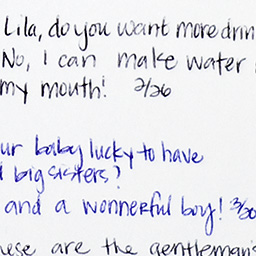 Lila, do you want more drin
No, I can make water
my mouth! 2/26
ur baby lucky to have
big sisters?
and a wonnerful boy! 3/20
are the gentleman's